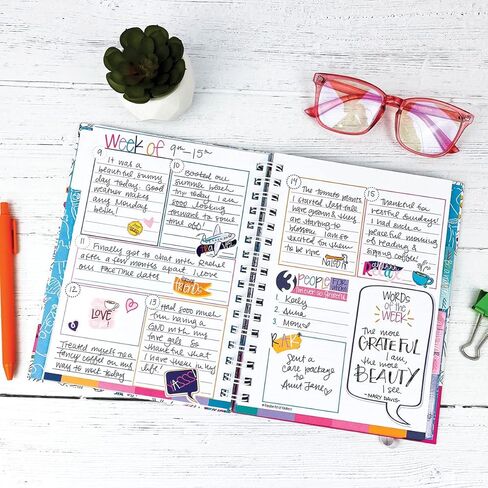 Week of 9th-15th
9
It was a
beautiful, sunny
day today. Good
weather makes
any Monday
better!
10
Booked our
summer beach
trip today. I am
soon looking
forward to some
time off!
11
Finally got to chat with Rachel
after a few months apart. I love
our FaceTime dates
FRIENDS
12
LOVE
Treated myself to a
fancy coffee on my
way to work today
13
Had sooo much
fun having a
GNO with my
fave gals. So
thankful that
I have them in my
life!
14
The tomato plants
I started last fall
have grown & they
are starting to
blossom. I am so
excited for them
to be ripe
15
Thankful for
restful Sundays!
I had such a
peaceful morning
of reading &
sipping coffee!
3 PEOPLE
1. Kaely
2. Anna
3. Mom
RAK
Sent a
care package
to Aunt Jane
WORDS
of the
WEEK
The more
GRATEFUL
I am,
the more
BEAUTY
I see.
-MARY DAVIS